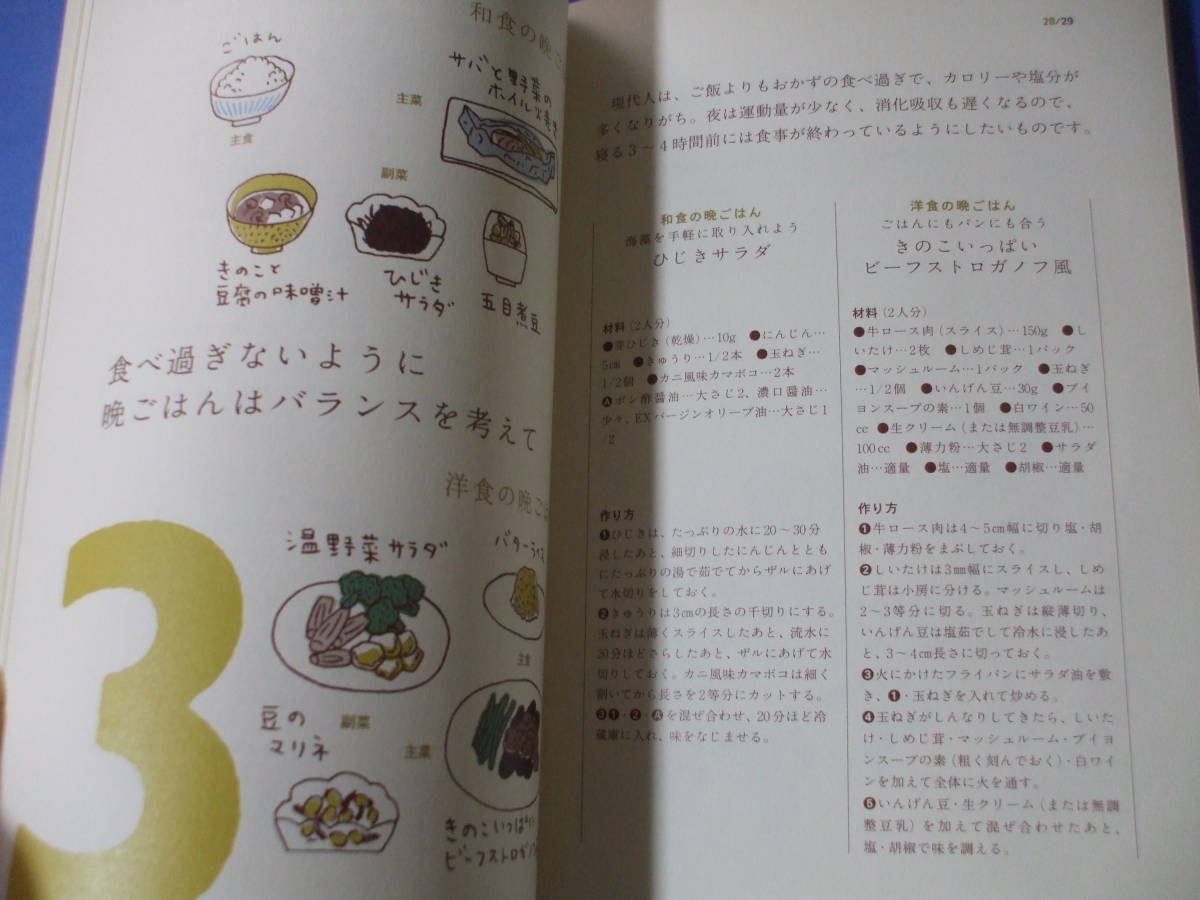 和食の晩ご
ごはん
主食
サバと野菜の
ホイル焼き
主菜
副菜
きのこと
豆腐の味噌汁
ひじき
サラダ
五目煮豆
食べ過ぎないように
晩ごはんはバランスを考えて
洋食の晩ごは
3
温野菜サラダ
バターライス
主食
豆の
マリネ
副菜
主菜
きのこいっぱい
ビーフストロガノフ
28/29
現代人は、ご飯よりもおかずの食べ過ぎで、カロリーや塩分が
多くなりがち。夜は運動量が少なく、消化吸収も遅くなるので、
寝る3〜4時間前には食事が終わっているようにしたいものです。
和食の晩ごはん
海藻を手軽に取り入れよう
ひじきサラダ
材料（2人分）
●芽ひじき（乾燥）…10g ●にんじん…
5㎝ ●きゅうり…1/2本 ●玉ねぎ…
1/2個 ●カニ風味カマボコ…2本
Ⓐポン酢醤油…大さじ2、濃口醤油…
少々、EXバージンオリーブ油…大さじ1
/2
作り方
❶ひじきは、たっぷりの水に20〜30分
浸したあと、細切りしたにんじんととも
にたっぷりの湯で茹でてからザルにあげ
て水切りをしておく。
❷きゅうりは3㎝の長さの千切りにする。
玉ねぎは薄くスライスしたあと、流水に
20分ほどさらしたあと、ザルにあげて水
切りしておく。カニ風味カマボコは細く
割いてから長さを2等分にカットする。
❸❶・❷・Ⓐを混ぜ合わせ、20分ほど冷
蔵庫に入れ、味をなじませる。
洋食の晩ごはん
ごはんにもパンにも合う
きのこいっぱい
ビーフストロガノフ風
材料（2人分）
●牛ロース肉（スライス）…150g ●し
いたけ…2枚 ●しめじ茸…1パック
●マッシュルーム…1パック ●玉ねぎ
…1/2個 ●いんげん豆…30g ●ブイ
ヨンスープの素…1個 ●白ワイン…50
cc ●生クリーム（または無調整豆乳）…
100cc ●薄力粉…大さじ2 ●サラダ
油…適量 ●塩…適量 ●胡椒…適量
作り方
❶牛ロース肉は4〜5㎝幅に切り塩・胡
椒・薄力粉をまぶしておく。
❷しいたけは3㎜幅にスライスし、しめ
じ茸は小房に分ける。マッシュルームは
2〜3等分に切る。玉ねぎは縦薄切り、
いんげん豆は塩茹でして冷水に浸したあ
と、3〜4㎝長さに切っておく。
❸火にかけたフライパンにサラダ油を敷
き、❶・玉ねぎを入れて炒める。
❹玉ねぎがしんなりしてきたら、しいた
け・しめじ茸・マッシュルーム・ブイヨ
ンスープの素（粗く刻んでおく）・白ワイ
ンを加えて全体に火を通す。
❺いんげん豆・生クリーム（または無調
整豆乳）を加えて混ぜ合わせたあと、
塩・胡椒で味を調える。